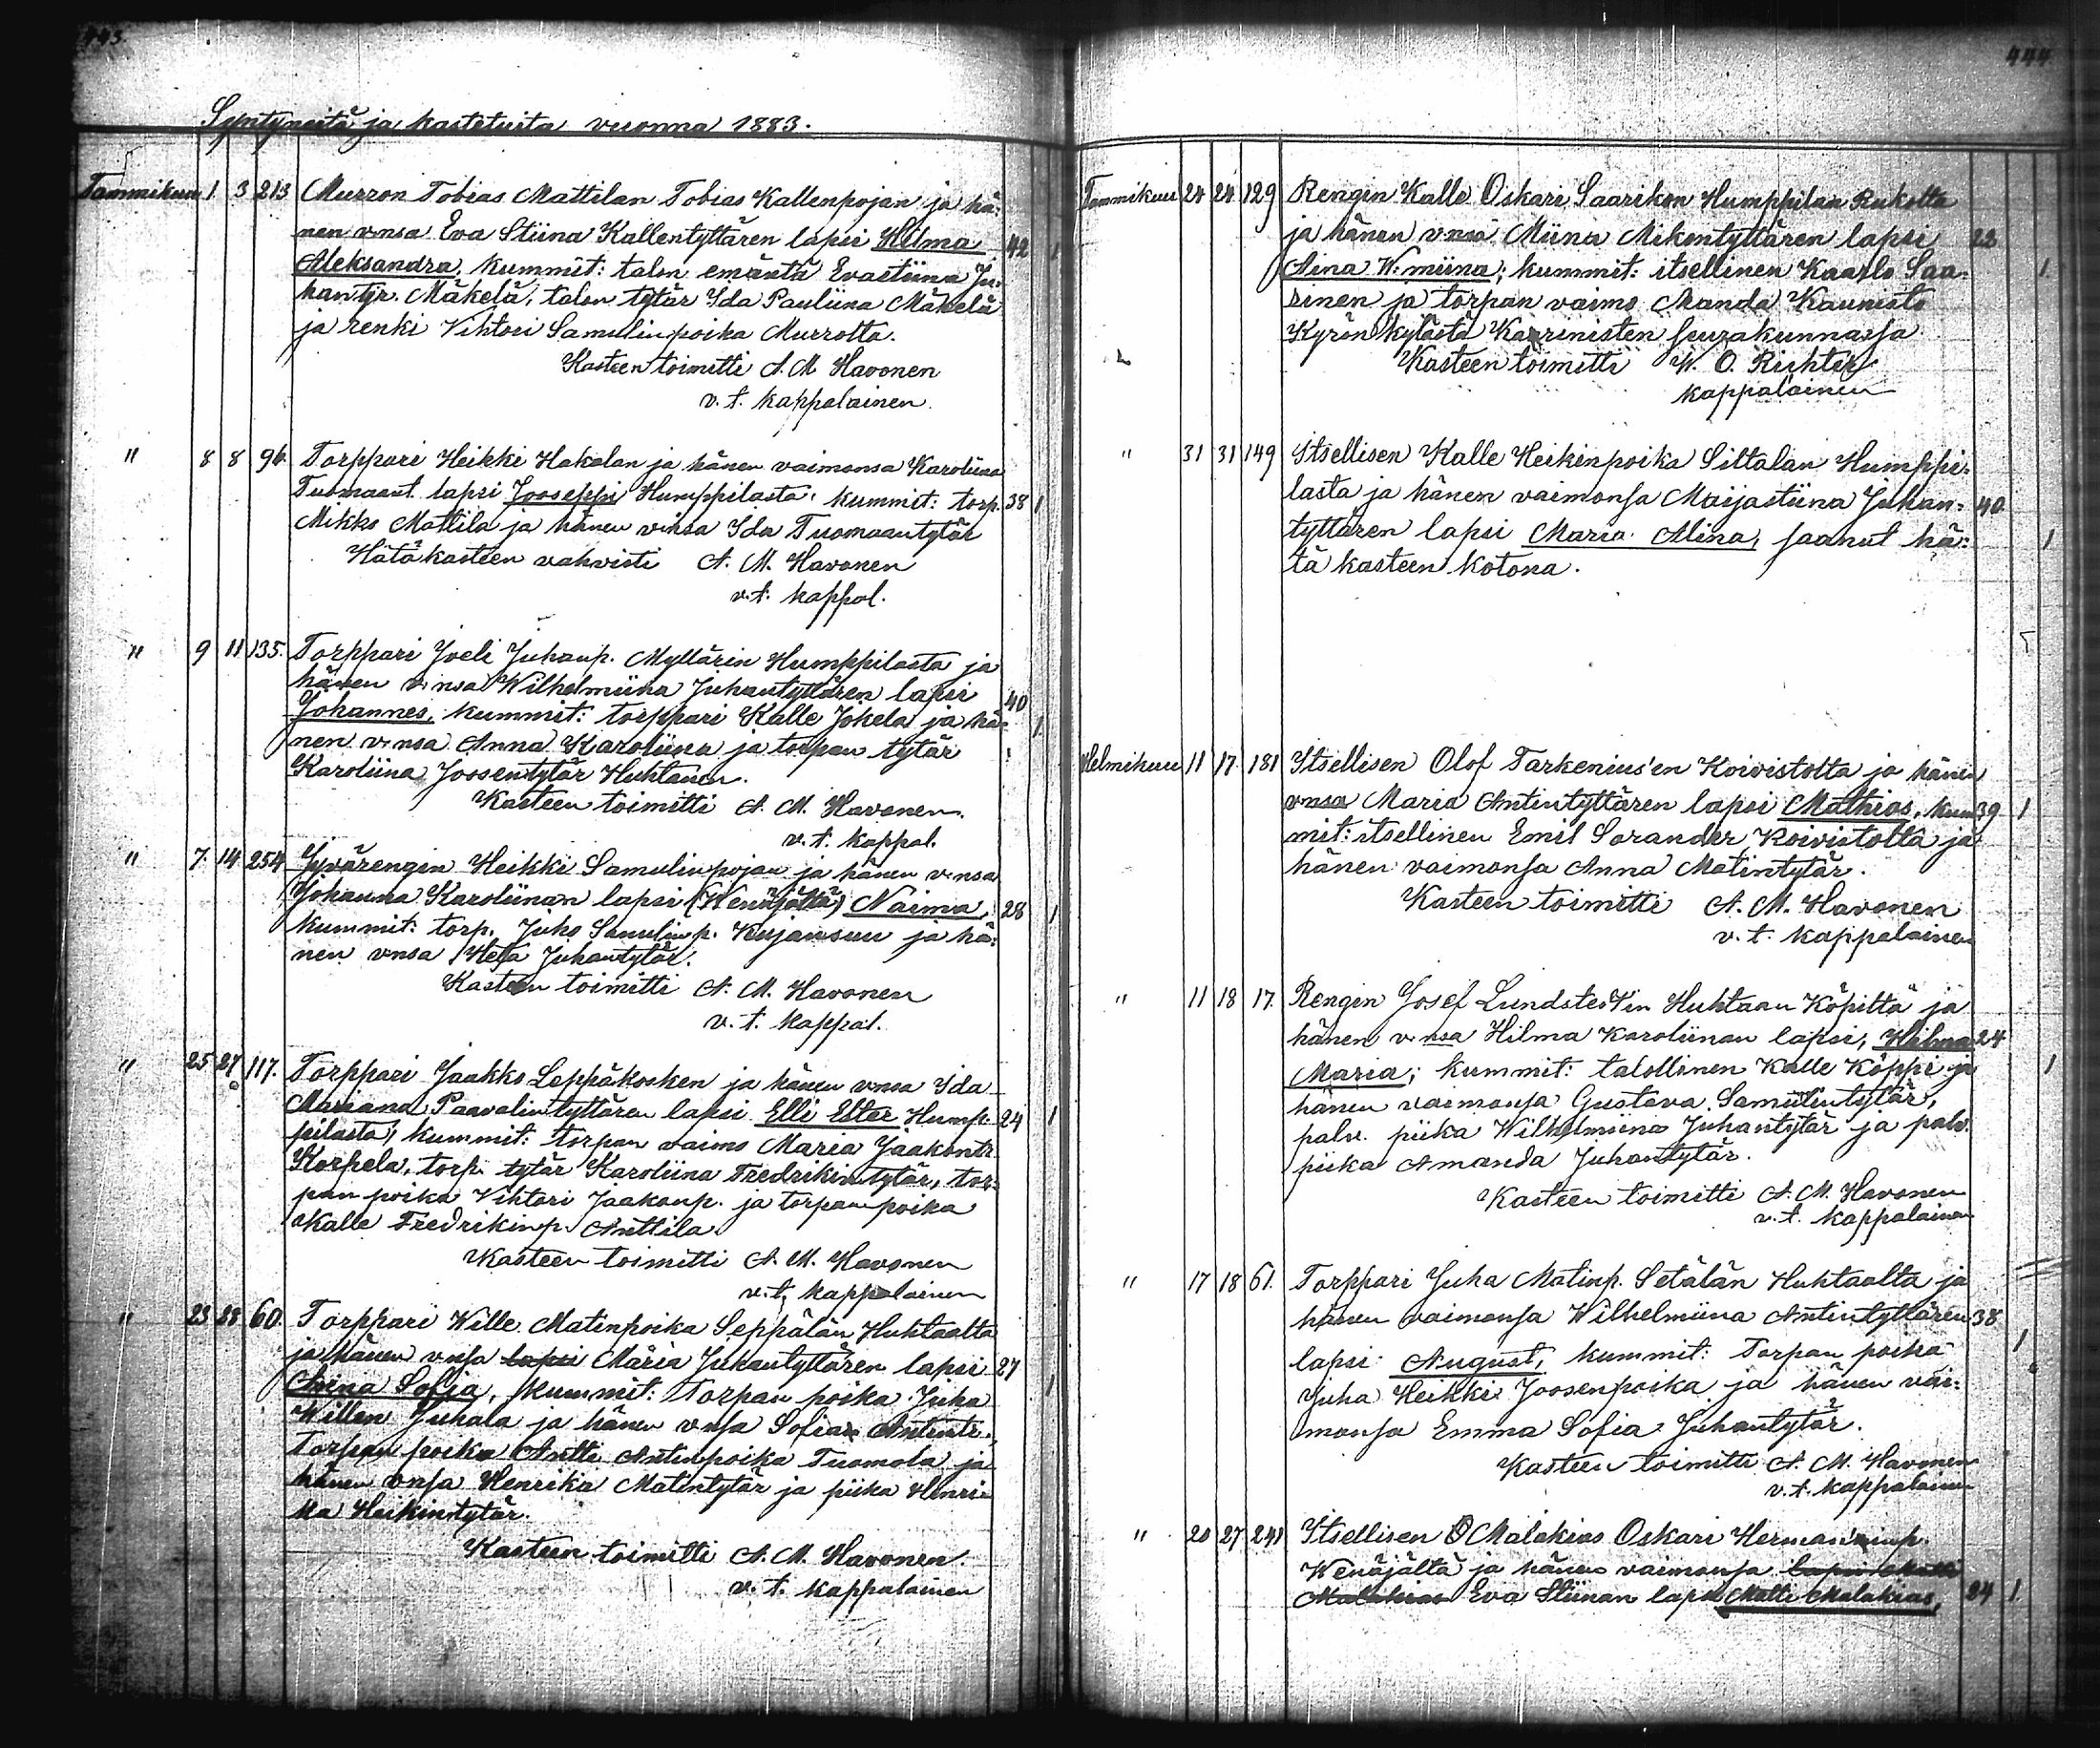 443.
Syntyneitä ja kastetuita vuonna 1883.
Tammikuu 1 3 213 Murron Tobias Mattilan Tobias Kallenpojan ja hä-
nen v:nsa Eva Stiina Kallentyttären lapsi Hilma 42 1
Aleksandra, kummit: talon emäntä Evastiina Ju-
hantyr. Mäkelä, talon tytär Ida Pauliina Mäkelä
ja renki Vihtori Samulinpoika Murrolta.
Kasteen toimitti A. M. Havonen
v. t. kappalainen.
" 8 8 96. Torppari Heikki Hakalan ja hänen vaimonsa Karoliina
Tuomaant. lapsi Jooseppi Humppilasta. kummit: torp. 38 1
Mikko Mattila ja hänen v:nsa Ida Tuomaantytär
Hätäkasteen vahvisti A. M. Havonen
v. t. kappal.
" 9 11 135. Torppari Joeli Juhanp. Myllärin Humppilasta ja
hänen v:nsa Wilhelmiina Juhantyttären lapsi 40
Johannes, kummit: torppari Kalle Jokela ja hä- 1.
nen v:nsa Anna Karoliina ja torpan tytär
Karoliina Joosentytär Huhtanen.
Kasteen toimitti A. M. Havonen.
v. t. kappal.
" 7. 14 254 Hyvärengin Heikki Samulinpojan ja hänen v:nsa
Johanna Karoliinan lapsi (Wenäjältä) Naima, 28 1
kummit: torp. Juho Samulinp. Kujansuu ja hä-
nen v:nsa Heta Juhantytär.
Kasteen toimitti A. M. Havonen
v. t. kappal.
" 25 27 117. Torppari Jaakko Leppäkosken ja hänen v:nsa Ida
Mariana Paavalintyttären lapsi Elli Ester Hump- 24 1
pilasta, kummit: torpan vaimo Maria Jaakontr.
Korpela, torp. tytär Karoliina Fredrikintytär, tor-
pan poika Vihtori Jaakonp. ja torpan poika
Kalle Fredrikinp. Anttila.
Kasteen toimitti A. M. Havonen
v. t. kappalainen
" 23 28 60. Torppari Wille Matinpoika Seppälän Huhtaalta
ja hänen v:nsa lapsi Maria Juhantyttären lapsi 27
Sofia, kummit: Torpan poika Juha 1
Willen Juhala ja hänen v:nsa Sofia Antintr.
Torpan poika Antti Antinpoika Tuomola ja
hänen v:nsa Henrika Matintytär ja piika Henri-
ka Heikintytär.
Kasteen toimitti A. M. Havonen.
v. t. kappalainen
444
Tammikuu 24 24 129 Rengin Kalle Oskari Saarikon Humppilan Rukolta
ja hänen v:nsa Miina Mikontyttären lapsi 23
Aina W:miina; kummit: itsellinen Kaarlo Saa- 1.
rinen ja torpan vaimo Manda Kaunisto
Kyrön kylästä Karinisten seurakunnassa
Kasteen toimitti W. O. Richter
kappalainen
" 31 31 149 Itsellisen Kalle Heikinpoika Siltalan Humppi-
lasta ja hänen vaimonsa Maijastiina Juhan- 40
tyttären lapsi Maria Alina, saanut hä- 1
tä kasteen kotona.
Helmikuu 11 17 181 Itsellisen Olof Tarkenius'en Koivistolta ja hänen
v:nsa Maria Antintyttären lapsi Mathias, kum- 39 1
mit: itsellinen Emil Sorander Koivistolta ja
hänen vaimonsa Anna Matintytär.
Kasteen toimitti A. M. Havonen
v. t. kappalainen
" 11 18 17. Rengin Josef Lundstedt'in Huhtaan Köpiltä ja
hänen v:nsa Hilma Karoliinan lapsi, Hilma 24
Maria; kummit: talollinen Kalle Köppi ja 1
hänen vaimonsa Gustava Samulintytär,
palv. piika Wilhelmiina Juhantytär ja palv.
piika Amanda Juhantytär.
Kasteen toimitti A. M. Havonen
v. t. kappalainen
" 17 18 61. Torppari Juha Matinp. Setälän Huhtaalta ja
hänen vaimonsa Wilhelmiina Antintyttären 38
lapsi August, kummit: Torpan poika 1
Juha Heikki Joosenpoika ja hänen vai-
monsa Emma Sofia Juhantytär.
Kasteen toimitti A. M. Havonen
v. t. kappalainen
" 20 27 241 Itsellisen Malakias Oskari Herman'inp.
Wenäjältä ja hänen vaimonsa lapsi Matti
Malakias Eva Stiinan lapsi Matti Malakias, 24 1.